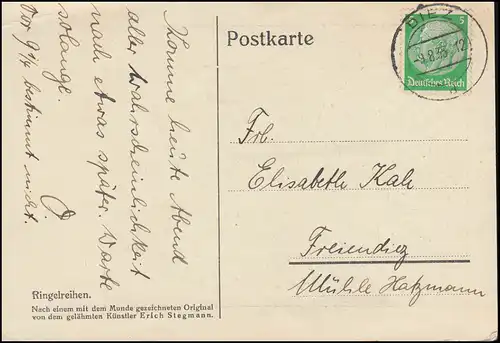 Postkarte
DIEZ
9.8.38.-12
5
Deutsches Reich
Komme heute Abend
aller Wahrscheinlichkeit
nach etwas später. Warte
solange.
Vor 9 1/4 bestimmt nicht.
Frl.
Elisabeth Kah
Freiendiez
Mühle Hatzmann
Ringelreihen.
Nach einem mit dem Munde gezeichneten Original
von dem gelähmten Künstler Erich Stegmann.